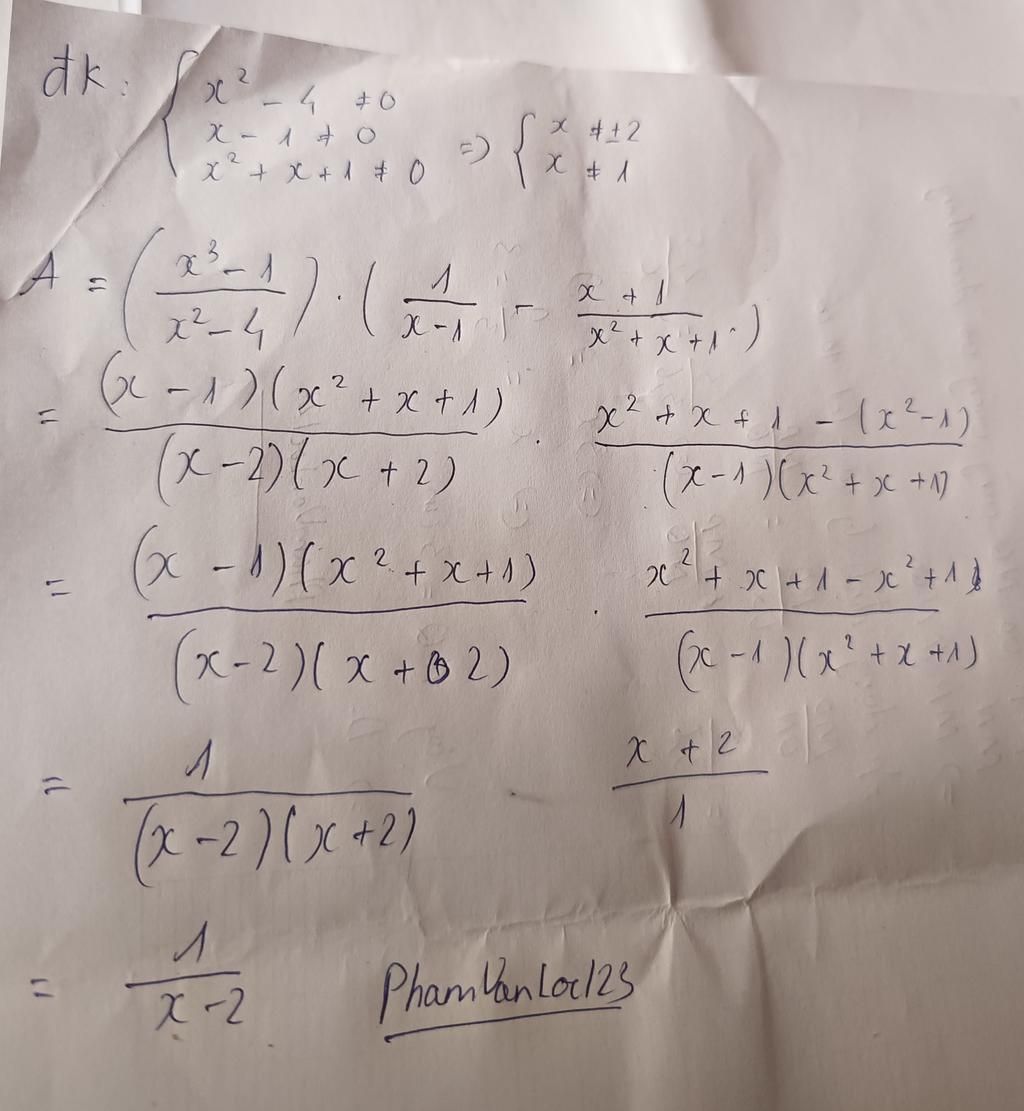 đk: { x² - 4 ≠ 0
x - 1 ≠ 0 => { x ≠ ±2
x² + x + 1 ≠ 0 x ≠ 1
A = ( (x³ - 1) / (x² - 4) ) . ( 1 / (x - 1) - (x + 1) / (x² + x + 1) )
= (x - 1)(x² + x + 1) / (x - 2)(x + 2) . x² + x + 1 - (x² - 1) / (x - 1)(x² + x + 1)
= (x - 1)(x² + x + 1) / (x - 2)(x + 2) . x² + x + 1 - x² + 1 / (x - 1)(x² + x + 1)
= 1 / (x - 2)(x + 2) . x + 2 / 1
= 1 / x - 2
PhamVanLoc123